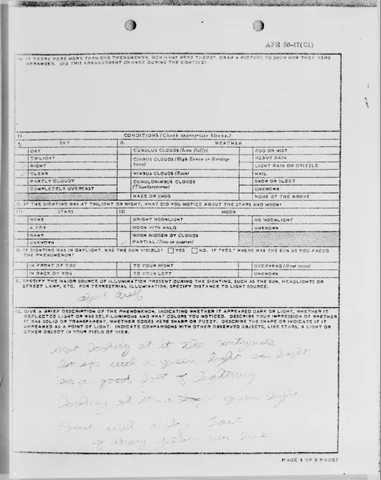 AFR 80-17(C1)
IF THERE WERE MORE THAN ONE PHENOMENON, HOW MANY WERE THERE? DRAW A PICTURE TO SHOW HOW THEY WERE
ARRANGED. DID THIS ARRANGEMENT CHANGE DURING THE SIGHTING?
CONDITIONS (Check appropriate blocks.)
SKY
WEATHER
DAY
CUMULUS CLOUDS (Low fluffy)
FOG OR MIST
TWILIGHT
CIRRUS CLOUDS (High fleece or Herring-bone)
HEAVY RAIN
NIGHT
LIGHT RAIN OR DRIZZLE
CLEAR
NIMBUS CLOUDS (Rain)
HAIL
PARTLY CLOUDY
CUMULONIMBUS CLOUDS
(Thunderstorms)
SNOW OR SLEET
COMPLETELY OVERCAST
UNKNOWN
HAZE OR SMOG
NONE OF THE ABOVE
IF THE SIGHTING WAS AT TWILIGHT OR NIGHT, WHAT DID YOU NOTICE ABOUT THE STARS AND MOON?
STARS
MOON
NONE
BRIGHT MOONLIGHT
NO MOONLIGHT
A FEW
MOON WITH HALO
UNKNOWN
MANY
MOON HIDDEN BY CLOUDS
UNKNOWN
PARTIAL (New or quarter)
IF SIGHTING WAS IN DAYLIGHT, WAS THE SUN VISIBLE? YES NO. IF "YES," WHERE WAS THE SUN AS YOU FACED
THE PHENOMENON?
IN FRONT OF YOU
TO YOUR RIGHT
OVERHEAD (Near noon)
IN BACK OF YOU
TO YOUR LEFT
UNKNOWN
SPECIFY THE MAJOR SOURCE OF ILLUMINATION PRESENT DURING THE SIGHTING, SUCH AS THE SUN, HEADLIGHTS OR
STREET LAMP, ETC. FOR TERRESTRIAL ILLUMINATION, SPECIFY DISTANCE TO LIGHT SOURCE.
GIVE A BRIEF DESCRIPTION OF THE PHENOMENON, INDICATING WHETHER IT APPEARED DARK OR LIGHT, WHETHER IT
REFLECTED LIGHT OR WAS SELF-LUMINOUS AND WHAT COLORS YOU NOTICED. DESCRIBE YOUR IMPRESSION OF WHETHER
IT WAS SOLID OR TRANSPARENT, WHETHER EDGES WERE SHARP OR FUZZY. DESCRIBE THE SHAPE OR INDICATE IF IT
APPEARED AS A POINT OF LIGHT. INDICATE COMPARISONS WITH OTHER OBSERVED OBJECTS, LIKE STARS, A LIGHT OR
OTHER OBJECT IN YOUR FIELD OF VIEW.
looking at it
with a green light
as a good
looking at it green light
with a
PAGE 4 OF 5 PAGES